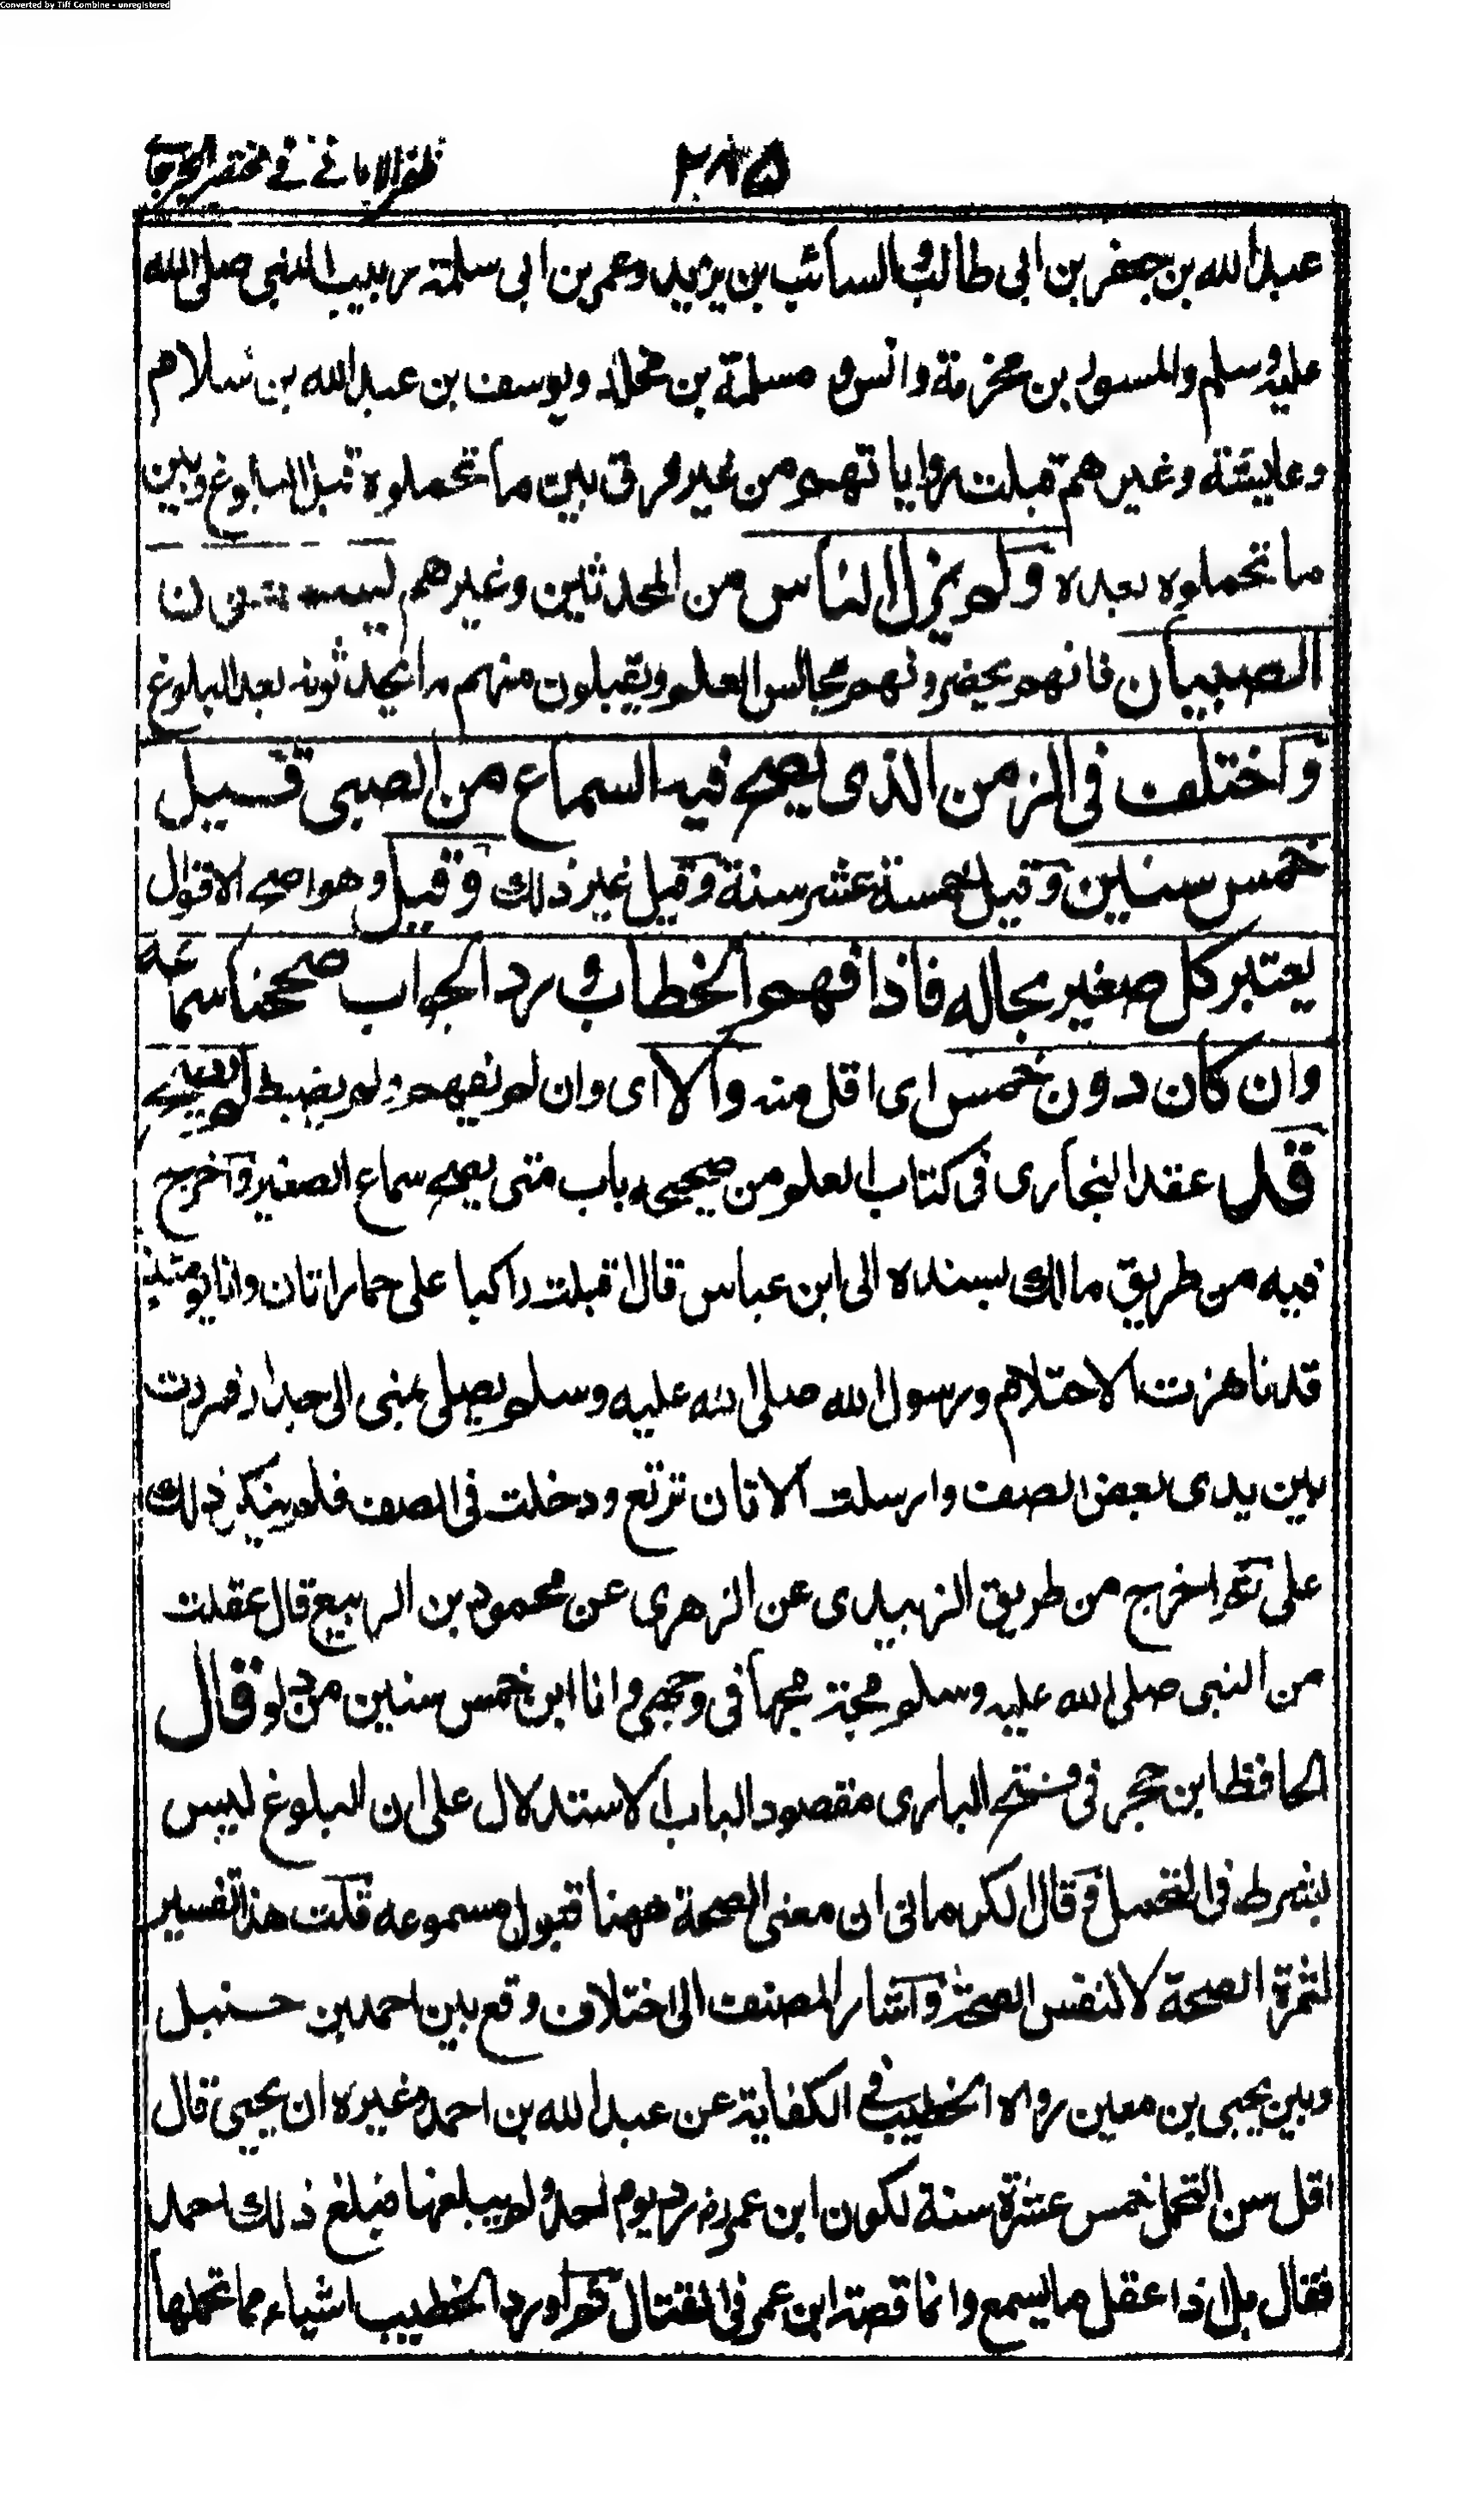 Converted by Tiff Combine - unregistered
٢٨٥
ظفر الاماني في مختصر الجرجاني
عبد الله بن جعفر بن ابي طالب والسائب بن يزيد وعمر بن ابي سلمة ربيب النبي صلى الله
عليه وسلم والمسور بن مخرمة وانس ومسلمة بن مخلد ويوسف بن عبد الله بن سلام
وعايشة وغيرهم قبلت رواياتهم من غير فرق بين ما تحملوه قبل البلوغ وبين
ما تحملوه بعده ولم يزل الناس من المحدثين وغيرهم يسمعون
الصبيان فانهم يحضرونهم مجالس العلم ويقبلون منهم ما يحدثونه بعد البلوغ
واختلف في الزمن الذى يصح فيه السماع من الصبي قيل
خمس سنين وقيل خمسة عشر سنة وقيل غير ذلك وقيل وهو اصح الاقوال
يعتبر كل صغير بحاله فاذا فهم الخطاب ورد الجواب صححنا سماعه
وان كان دون خمس اى اقل منه والا اى وان لم يفهم ولم يضبط لم يصح
قلت عقد البخارى في كتاب العلم من صحيحه باب متى يصح سماع الصغير واخرج
فيه من طريق مالك بسنده الى ابن عباس قال اقبلت راكبا على حمار اتان وانا يومئذ
قد ناهزت الاحتلام ورسول الله صلى الله عليه وسلم يصلى بمنى الى جدار فمررت
بين يدى بعض الصف وارسلت الاتان ترتع ودخلت في الصف فلم ينكر ذلك
على واخرج من طريق الزبيدى عن الزهرى عن محمود بن الربيع قال عقلت
من النبى صلى الله عليه وسلم مجة مجها في وجهى وانا ابن خمس سنين من دلو قال
الحافظ ابن حجر في فتح البارى مقصود الباب الاستدلال على ان البلوغ ليس
بشرط في التحمل وقال الكرمانى ان معنى الصحة ههنا قبول مسموعه قلت هذا تفسير
لثمرة الصحة لا لنفس الصحة واشار المصنف الى اختلاف وقع بين احمد بن حنبل
وبين يحيى بن معين رواه الخطيب في الكفاية عن عبد الله بن احمد وغيره ان يحيى قال
اقل سن التحمل خمس عشرة سنة لكون ابن عمر رد يوم احد ولم يبلغها فبلغ ذلك احمد
فقال بل اذا عقل ما يسمع وانما قصة ابن عمر في القتال ثم اورد الخطيب اشياء مما تحملها